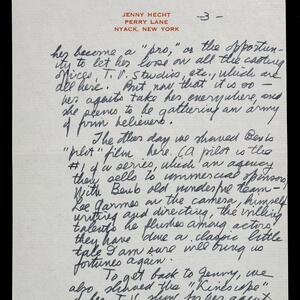 JENNY HECHT
PERRY LANE
NYACK, NEW YORK
- 3 -
her become a "pro," or the opportun-
ity to let her loose on all the casting
offices, T.V. studios, etc., which are
all here. But now that it is so —
her agents take her everywhere and
she seems to be gathering an army
of firm believers.
The other day we showed Ben's
"pilot" film here. (A pilot is the
#1 of a series, which an agency
then sells to commercial sponsors)
With Ben's old wonderful team —
Lee Garmes on the camera, himself
writing and directing, the willing
talents he finds among actors,
they have done a classic little
tale I am sure will bring us
fortunes again.
To get back to Jenny, we
also showed the "Kinescope"